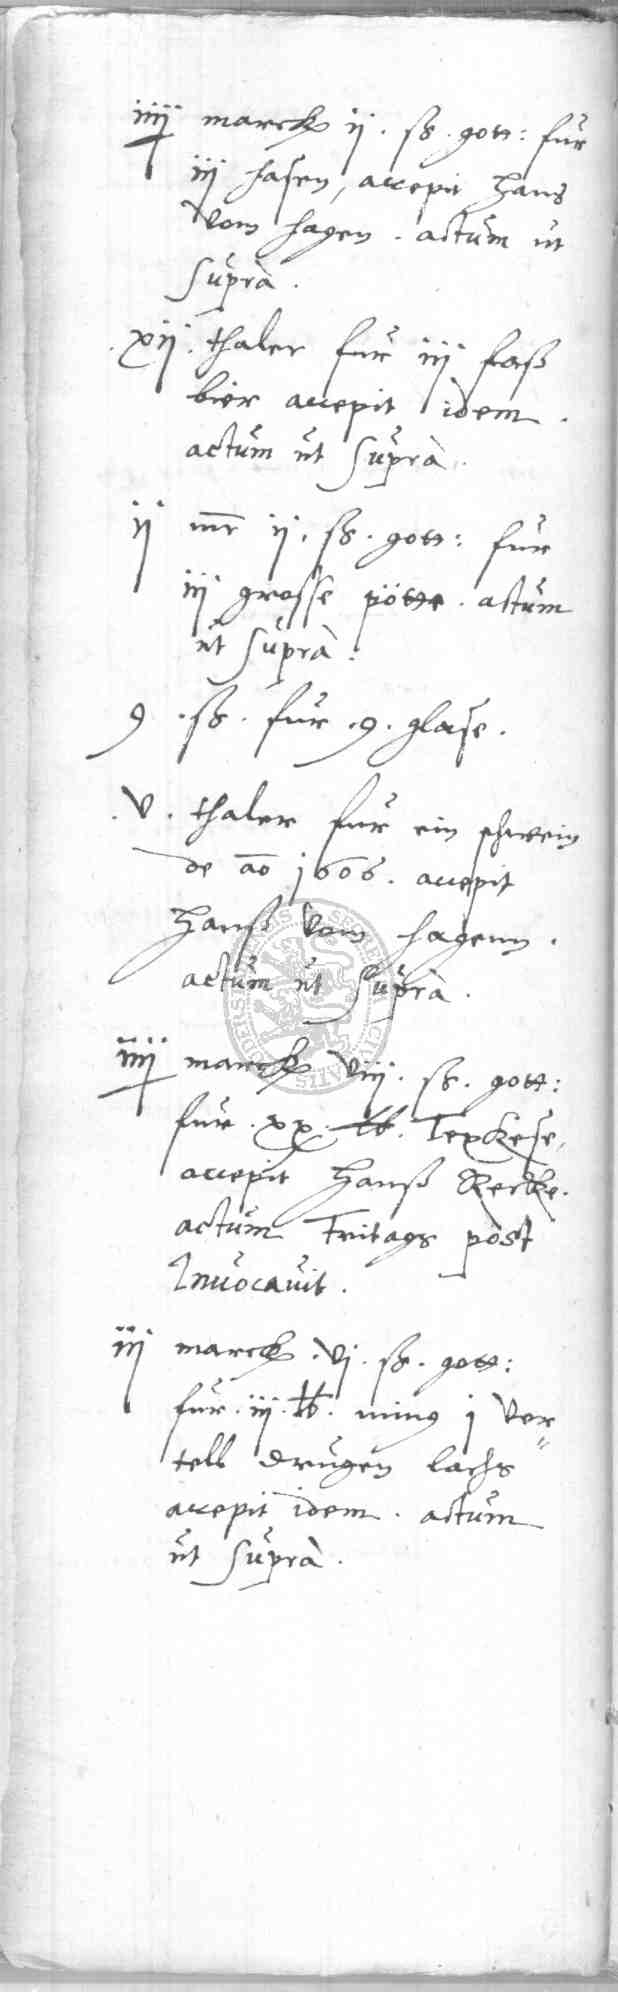 iiij marck ij . ß . gott: für
iij hasen, accepit Hans
vom hagen . actum ut
supra .
. xij . thaler für iij faß
bier accepit idem .
actum ut supra .
ij mr ij . ß . gott: für
iij grosse pötte . actum
ut supra .
9 . ß . für . 9 . glase .
. v . thaler für ein schwein
de ao 1606 . accepit
Hanß vom hagenn .
actum ut supra .
iiij marck viij . ß . gott:
für . xx . lb . Texkese,
accepit Hanß Kerke .
actum Fritags post
Invocavit .
iij marck . vj . ß . gott:
für . iij . lb . ming j ver=
tell drugen lachs
accepit idem . actum
ut supra .